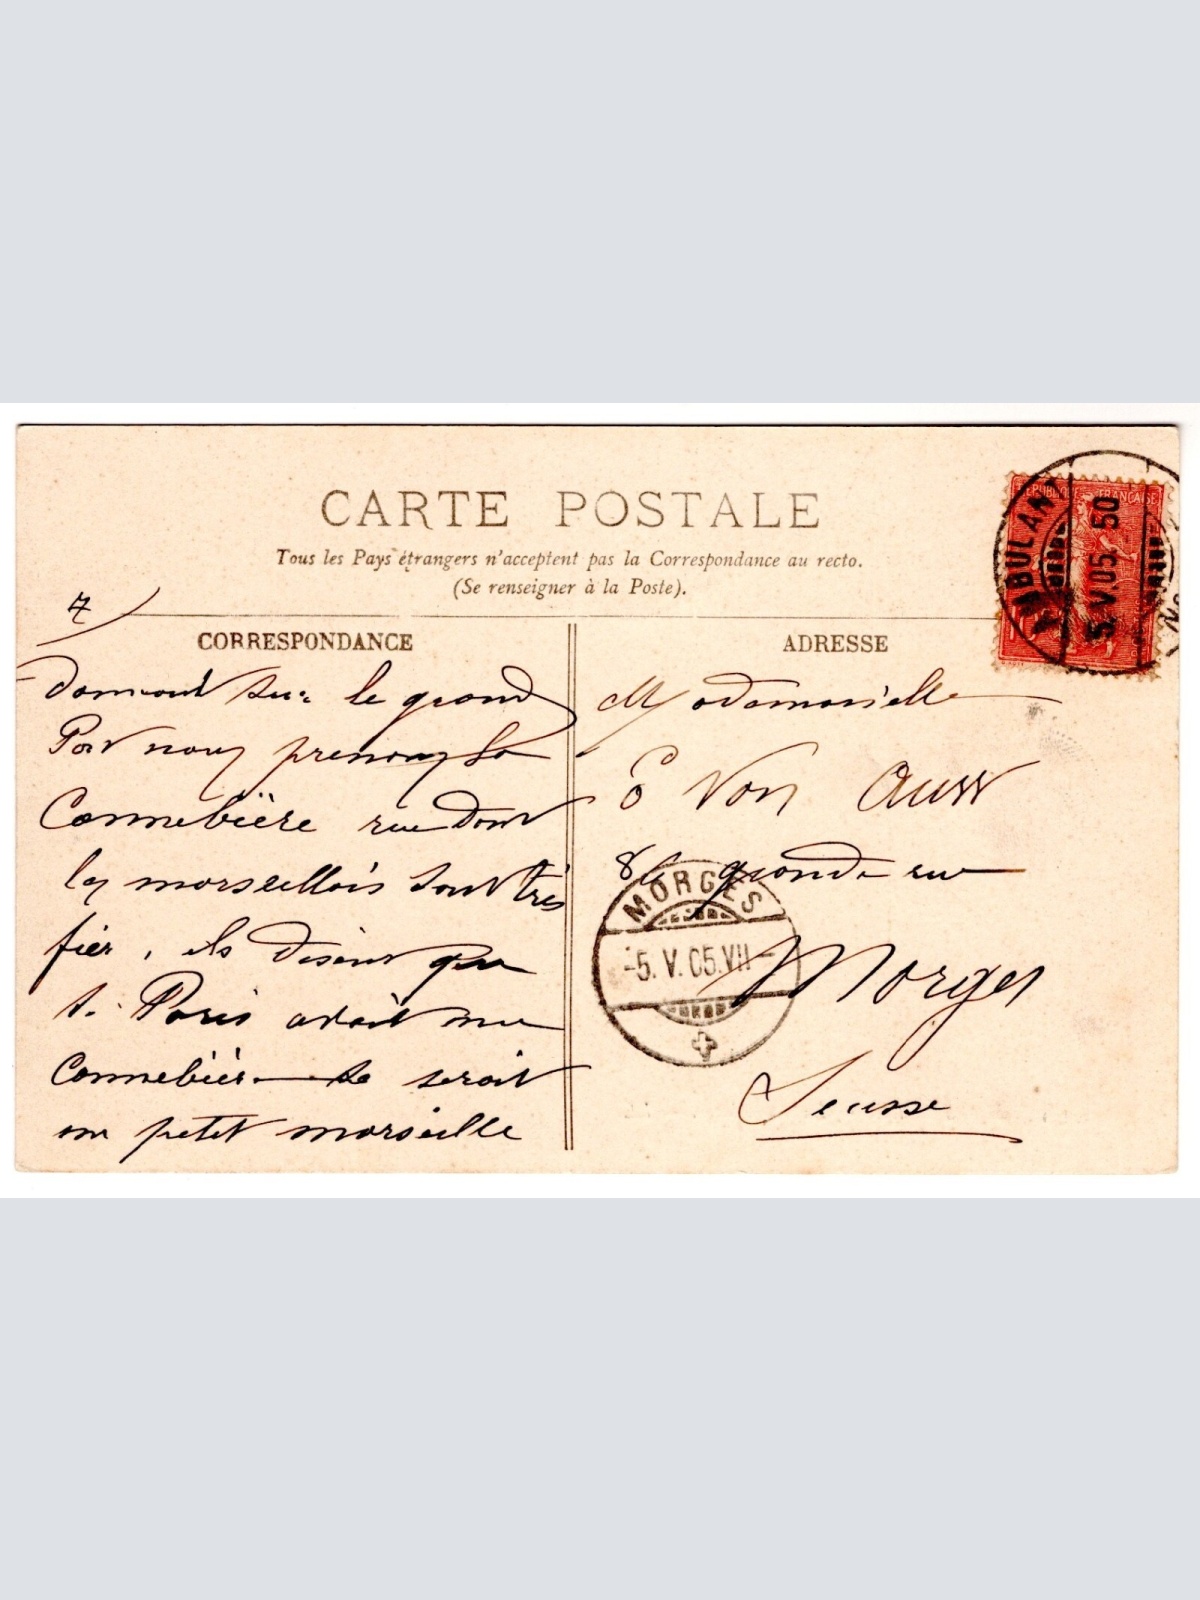 CARTE POSTALE
Tous les Pays étrangers n'acceptent pas la Correspondance au recto.
(Se renseigner à la Poste).
7
CORRESPONDANCE
donnant sur le grand
Port nous prenons la
Cannebière rue dont
les marseillois sont très
fier, ils disent que
si Paris avait une
Cannebière se serait
un petit marseille
ADRESSE
Mademoiselle
E Von Auw
84 grande rue
Morges
Suisse
REPUBLIQUE FRANÇAISE
AMBULANT
5.V.05. 50
MORGES
-5.V.05.VII-